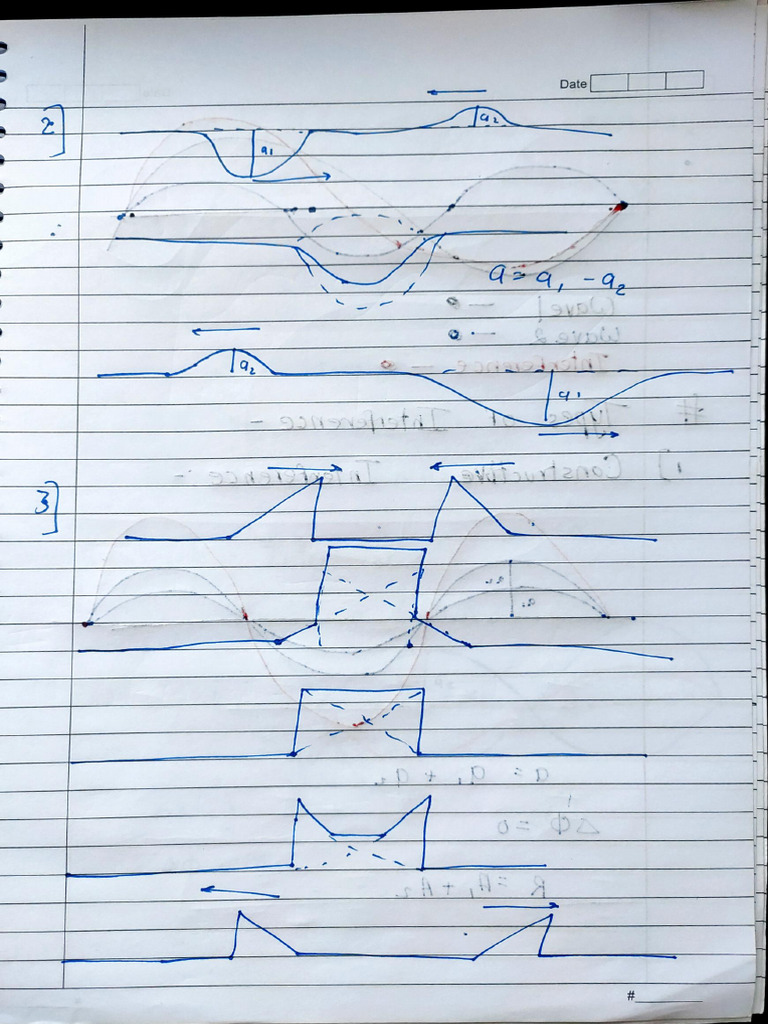 Date
2]
a₁
a₂
a = a₁ - a₂
a₂
a₁
3]
#